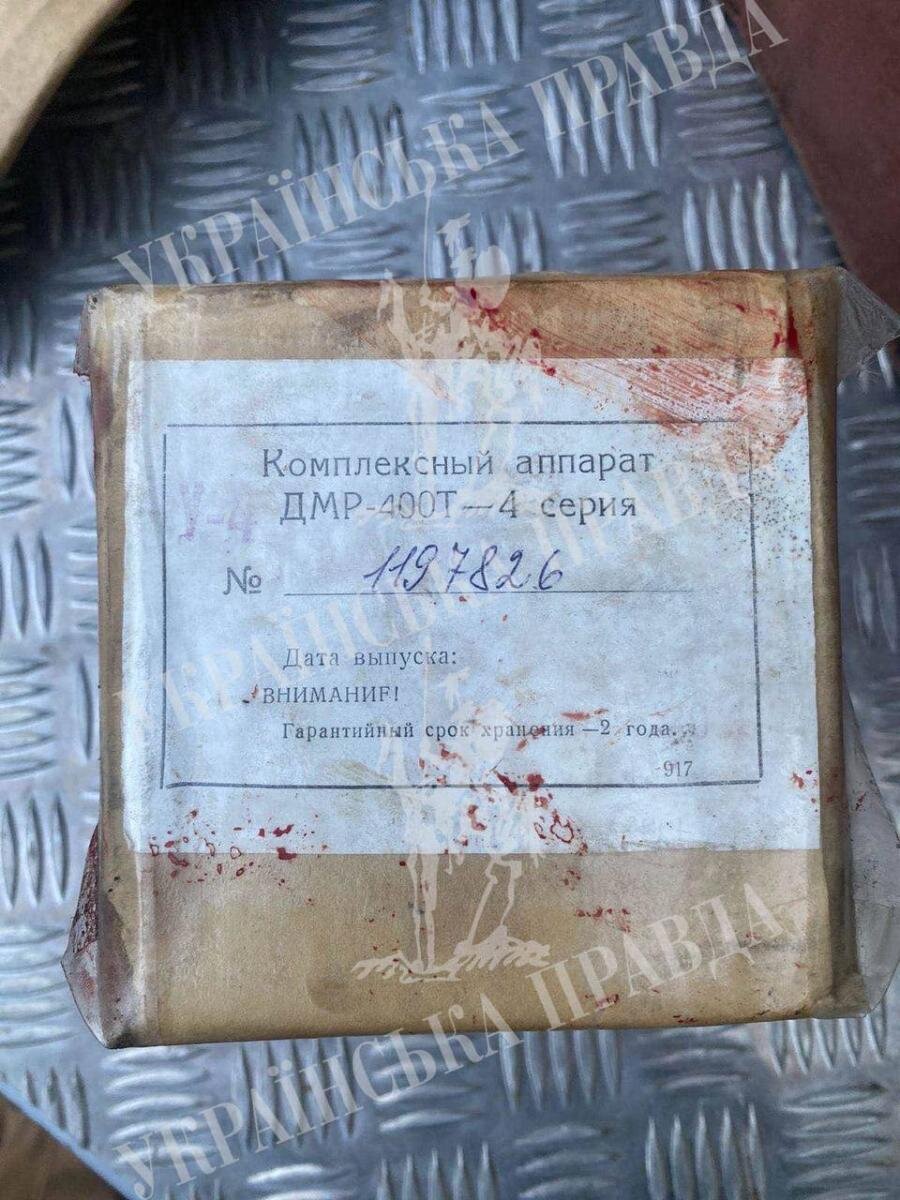 УКРАЇНСЬКА ПРАВДА
Комплексный аппарат
У-4 ДМР-400Т — 4 серия
№ 1197826
УКРАЇНСЬКА ПРАВДА
Дата выпуска:
ВНИМАНИЕ!
Гарантийный срок хранения — 2 года.
917
УКРАЇНСЬКА ПРАВДА